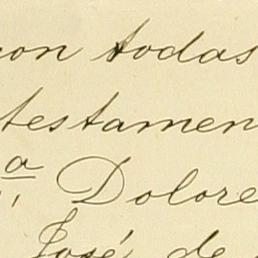 con todas
testamen
ª Dolore
José de